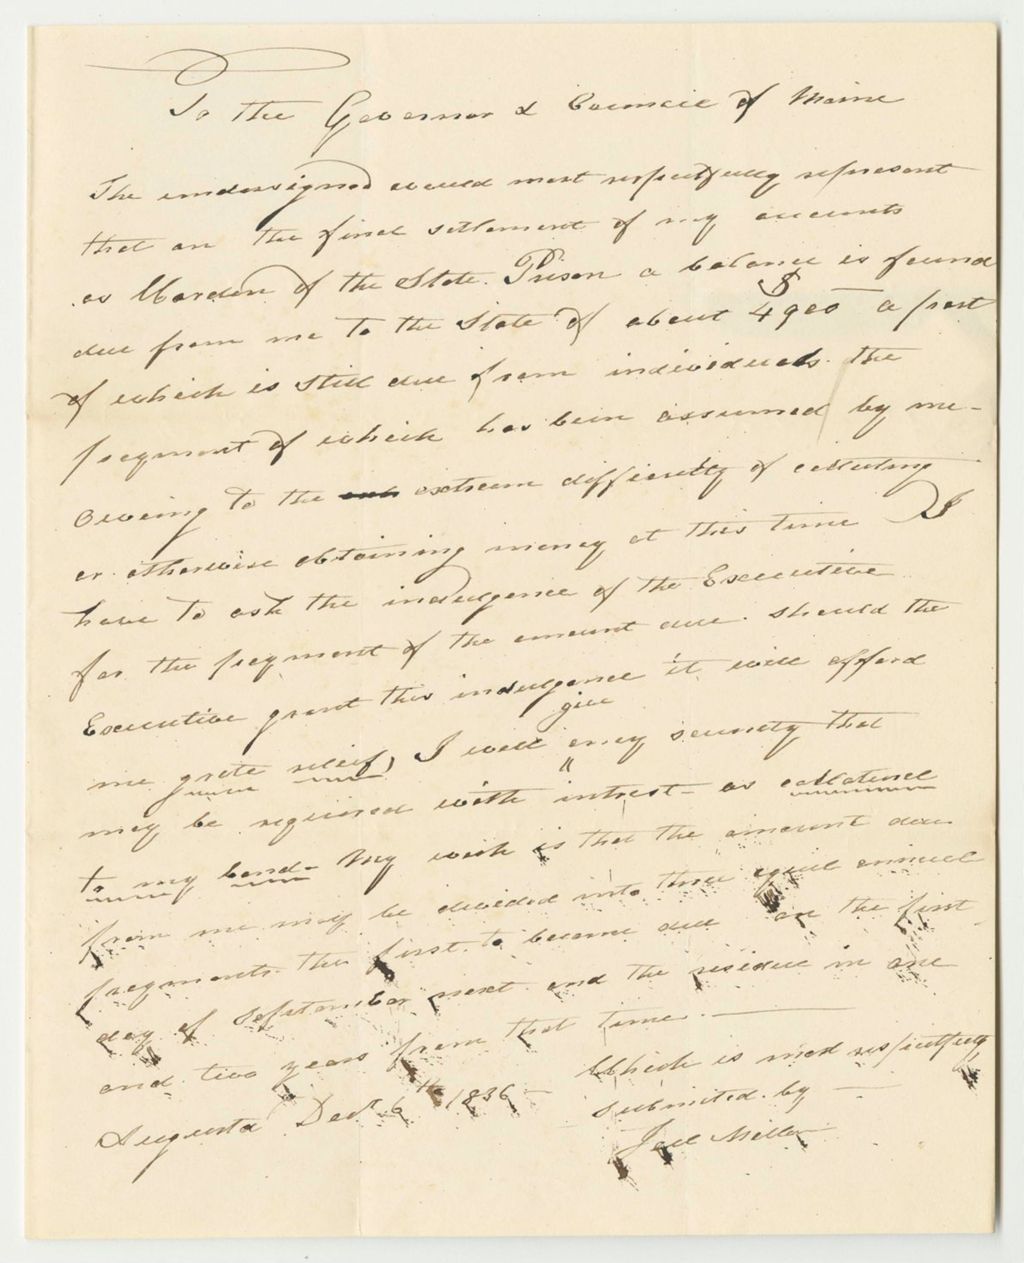 To the Governor & Council of Maine
The undersigned would most respectfully represent
that on the final setlement of my accounts
as Warden of the State Prison a balance is found
due from me to the State of about $4900 - a part
of which is still due from individuals. the
payment of which has been assumed by me -
Owing to the extream difficulty of collecting
or otherwise obtaining money at this time I
have to ask the indulgence of the Executive
for the payment of the amount due. should the
Executive grant this indulgence it will afford
me grate relief, I will give any security that
may be required with intrest - as collateral
to my bond - My wish is that the amount due
from me may be devided into three equil annual
payments the first to become due on the first
day of September next and the residue in one
and two years from that time. —
Which is most respectfuly
Augusta Decr 6th 1836 - submited by —
Joel Miller